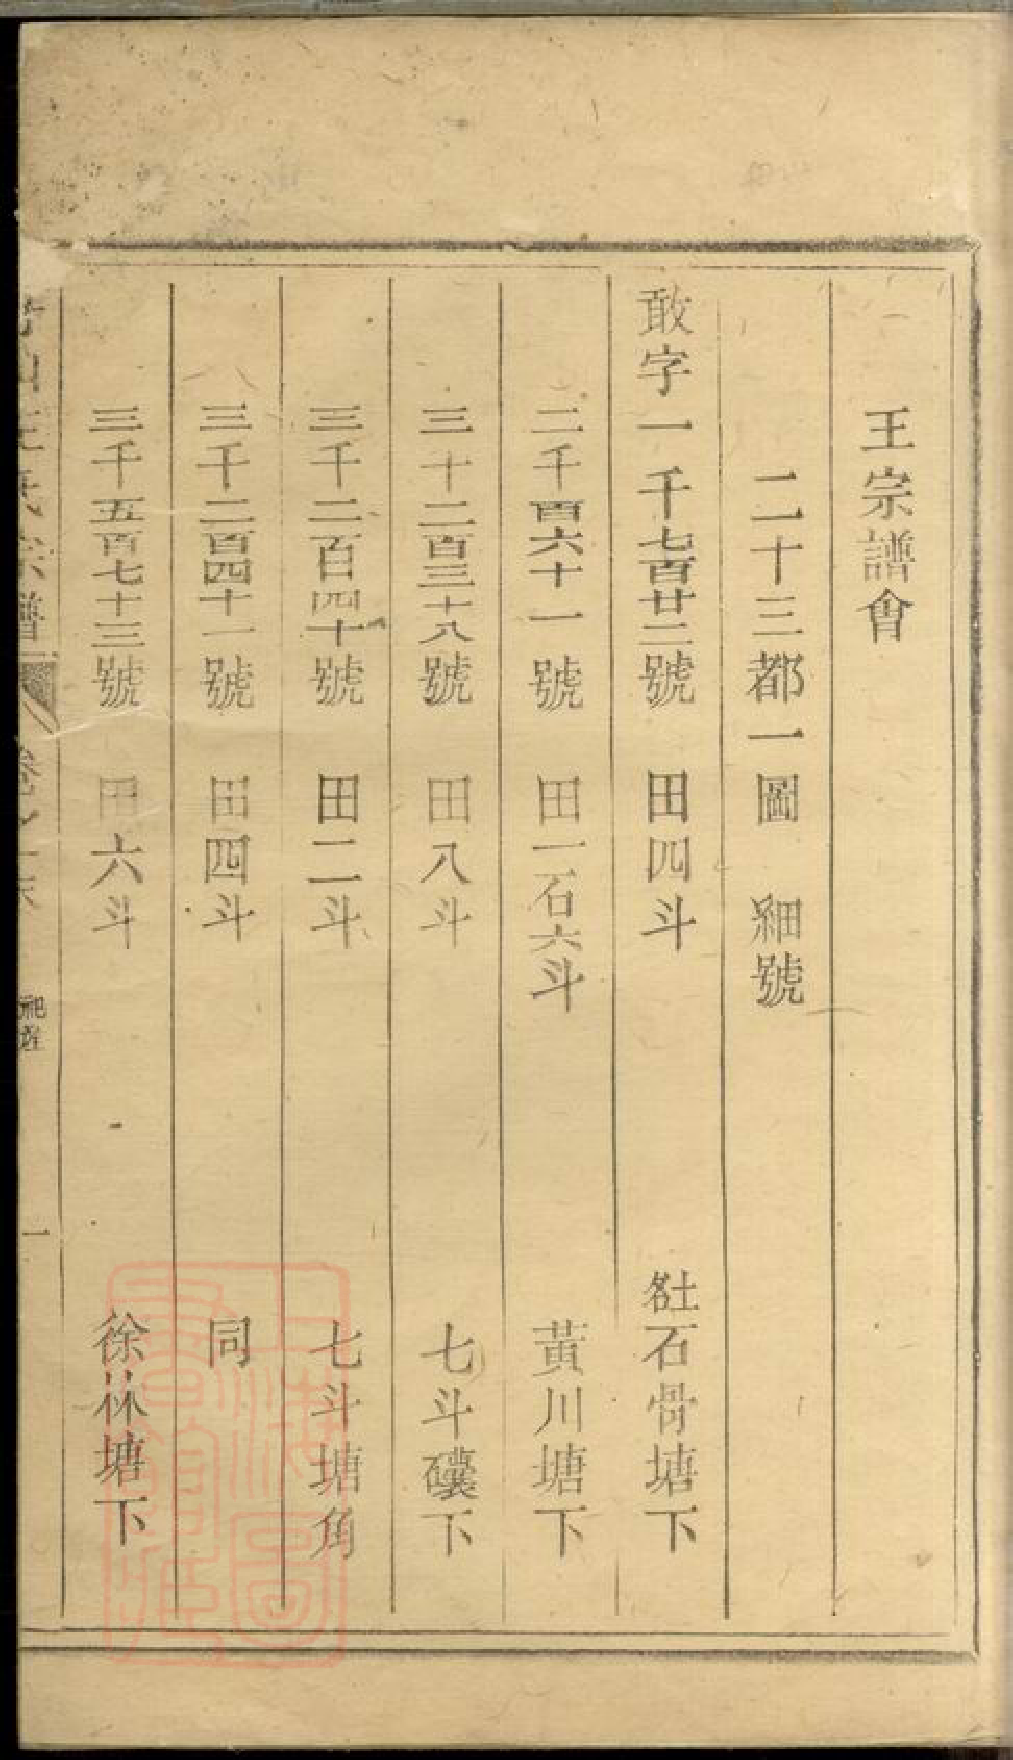 王宗譜會
二十三都一圖　細號
敢字一千七百廿二號　田四斗　土名石骨塘下
二千四百六十一號　田一石六斗　黃川塘下
三千二百三十八號　田八斗　七斗下
三千二百四十號　田二斗　七斗塘角
三千二百四十一號　田四斗　同
三千五百七十三號　田六斗　徐林塘下
王氏宗譜　祀產　一
上海圖書館藏